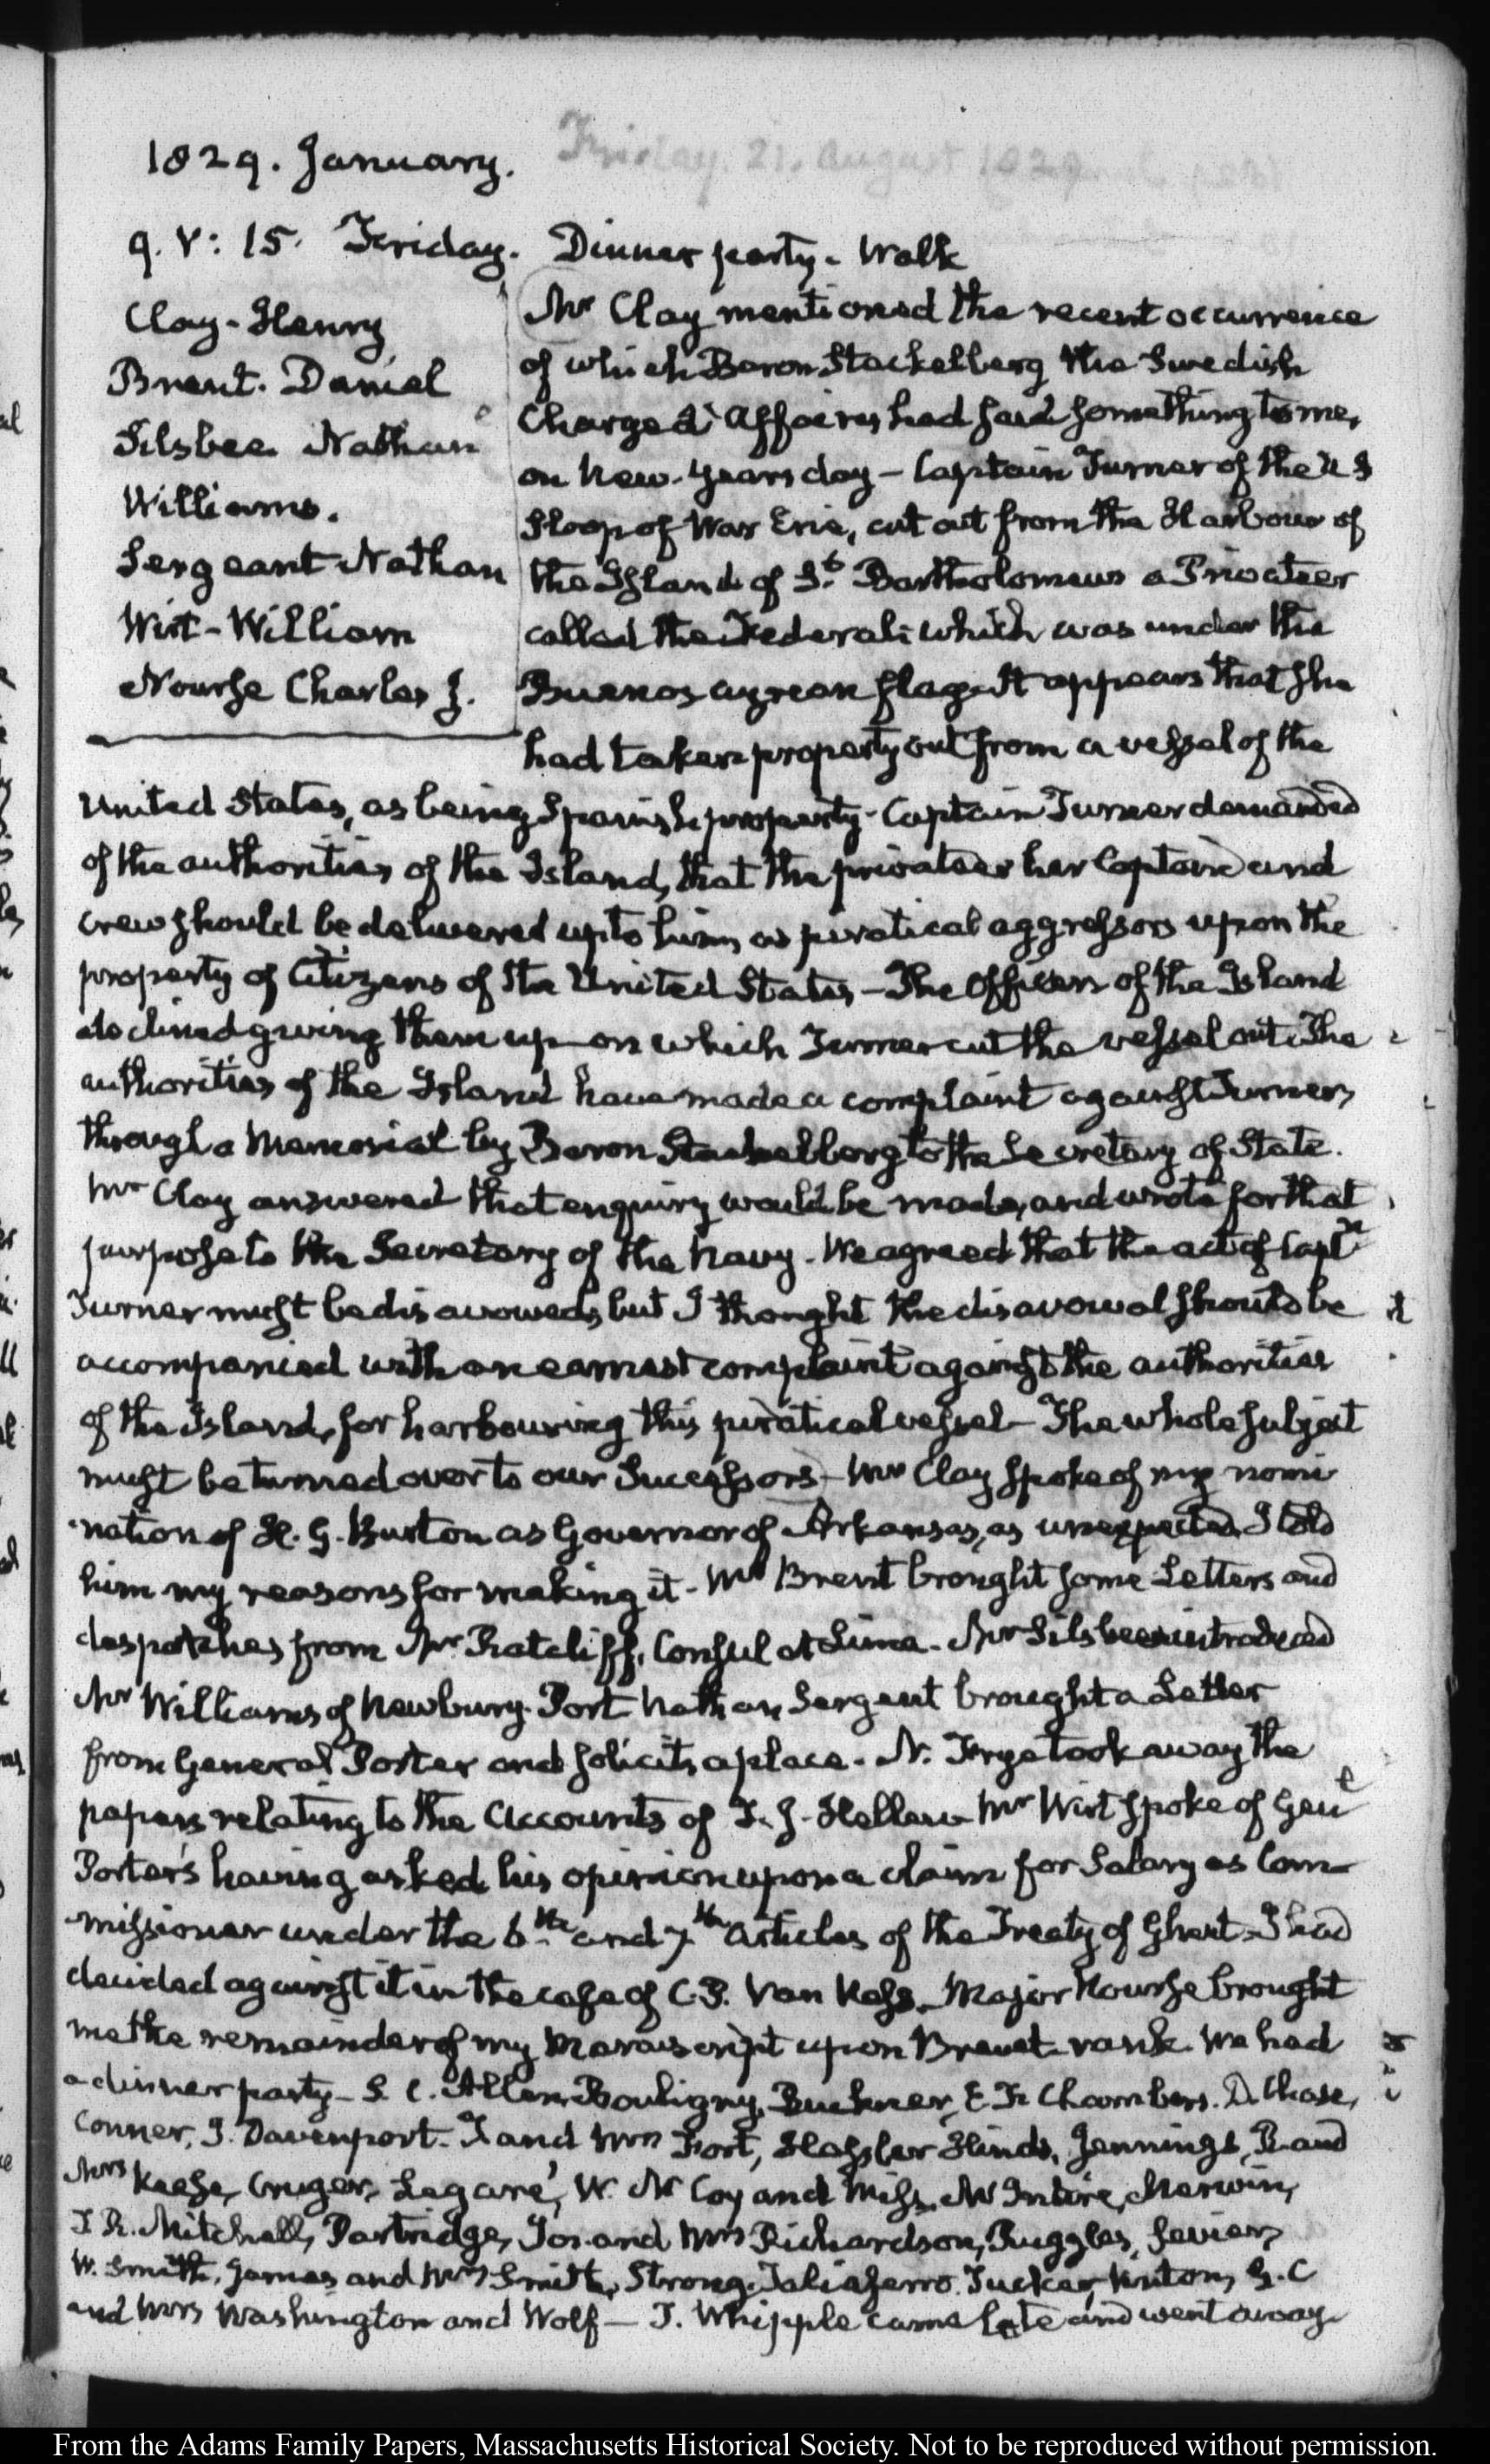 1829. January.
9. V: 15. Friday. Dinner party - Walk
Clay - Henry
Brent. Daniel
Silsbee Nathan
Williams.
Sergeant Nathan
Wirt - William
Nourse Charles J.
Mr Clay mentioned the recent occurrence
of which Baron Stackelberg the Swedish
Chargé d'Affaires had said something to me,
on New-Years day - Captain Turner of the U S
Sloop of War Erie, cut out from the Harbour of
the Island of St Bartholomews a Privateer
called the Federal which was under the
Buenos ayrean flag. It appears that she
had taken property out from a vessel of the
United States, as being Spanish property. Captain Turner demanded
of the authorities of the Island, that the privateer her Captain and
crew should be delivered up to him, as piratical aggressors upon the
property of Citizens of the United States, - The Officers of the Island
declined giving them up - on which Turner cut the vessel out. The
authorities of the Island have made a complaint against Turner,
through a Memorial by Baron Stackelberg to the Secretary of State.
Mr Clay answered that enquiry would be made, and wrote for that
purpose to the Secretary of the Navy. We agreed that the act of Captn
Turner must be disavowed, but I thought the disavowal should be
accompanied with an earnest complaint against the authorities
of the Island, for harbouring this piratical vessel - The whole subject
must be turned over to our Successors - Mr Clay spoke of my nomi-
-nation of H. G. Burton as Governor of Arkansas, as unexpected. I told
him my reasons for making it - Mr Brent brought some Letters and
despatches from Mr Ratcliff, Consul at Lima. Mr Silsbee introduced
Mr Williams of Newbury-Port Nathan Sergeant brought a Letter
from General Porter and solicits a place. N. Frye took away the
papers relating to the Accounts of Mr Wirt spoke of Genl
Porter's having asked his opinion upon a claim for Salary as Com-
-missioner under the 6th and 7th Articles of the Treaty of Ghent. I had
decided against it in the case of C. P. Van Ness. Major Nourse brought
me the remainder of my Manuscript upon Brevet rank. We had
a dinner party - S. C. Allen, Bouligny, Buckner, E. F. Chambers. D. Chase,
Conner, J. Davenport. T. and Mrs Fort, Hassler Hinds, Jennings, R. and
Mrs Keese, Cruger, Legaré, W. McCoy and Miss, McIntire, Merwin,
T. R. Mitchell, Partridge, Jos. and Mrs Richardson, Ruggles, Sevier,
W. Smith, James and Mrs Smith, Strong. Taliaferro. Tucker, G. C
and Mrs Washington and Wolf - T. Whipple came late and went away
From the Adams Family Papers, Massachusetts Historical Society. Not to be reproduced without permission.